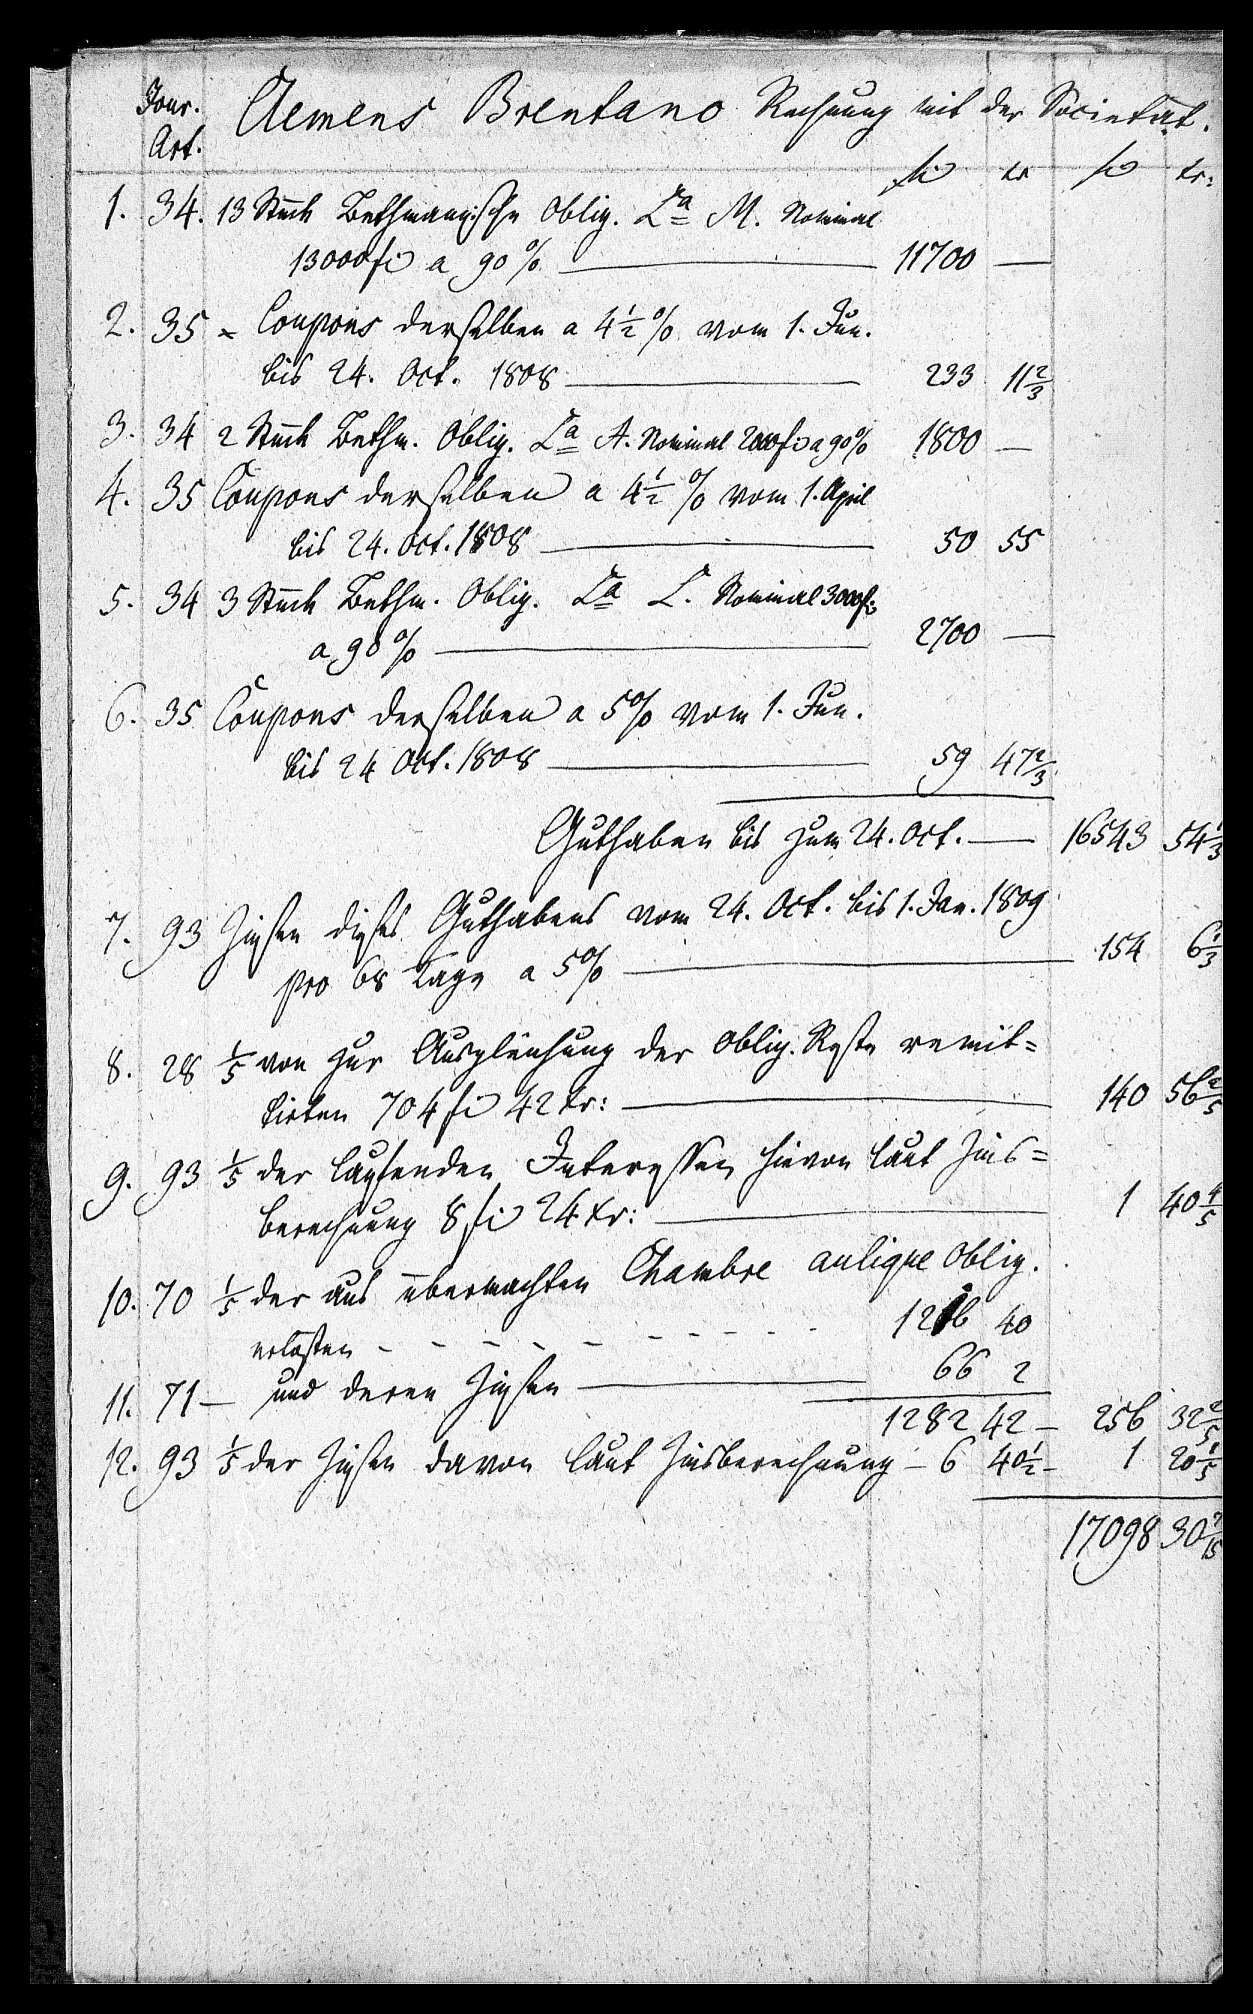 Jour. Clemens Brentano Rechnung mit der Societät.
Art. fl kr fl kr:
1. 34. 13 Stück Bethmannische Oblig. La M. Nominal
13000 fl a 90 % — 11700 —
2. 35 Coupons derselben a 4 1/2 % vom 1. Jun.
bis 24. Oct. 1808 — 233 11 2/3
3. 34 2 Stück Bethm. Oblig. La A. Nominal 2000 fl a 90 % 1800 —
4. 35 Coupons derselben a 4 1/2 % vom 1. April
bis 24. Oct. 1808 — 50 55
5. 34 3 Stück Bethm. Oblig. La L. Nominal 3000 fl
a 90 % — 2700 —
6. 35 Coupons derselben a 5 % vom 1. Jun.
bis 24 Oct. 1808 — 59 47 2/3
Guthaben bis zum 24. Oct. — 16543 54 1/3
7. 93 Zinsen dieses Guthabens vom 24. Oct. bis 1. Jan. 1809
pro 68 Tage a 5 % — 154 6 1/3
8. 28 1/5 von zur Ausgleichung der Oblig. Reste remit=
tirten 704 fl 42 kr: — 140 56 2/5
9. 93 1/5 der laufenden Interessen hievon laut Zins=
berechnung 8 fl 24 kr: — 1 40 4/5
10. 70 1/5 der aus übermachten Chambre aulique Oblig.
erlösten - - - - - - - - - 1216 40
11. 71 — und deren Zinsen — 66 2
1282 42 — 256 32 2/5
12. 93 1/5 der Zinsen davon laut Zinsberechnung — 6 40 1/2 — 1 20 1/5
17098 30 7/15